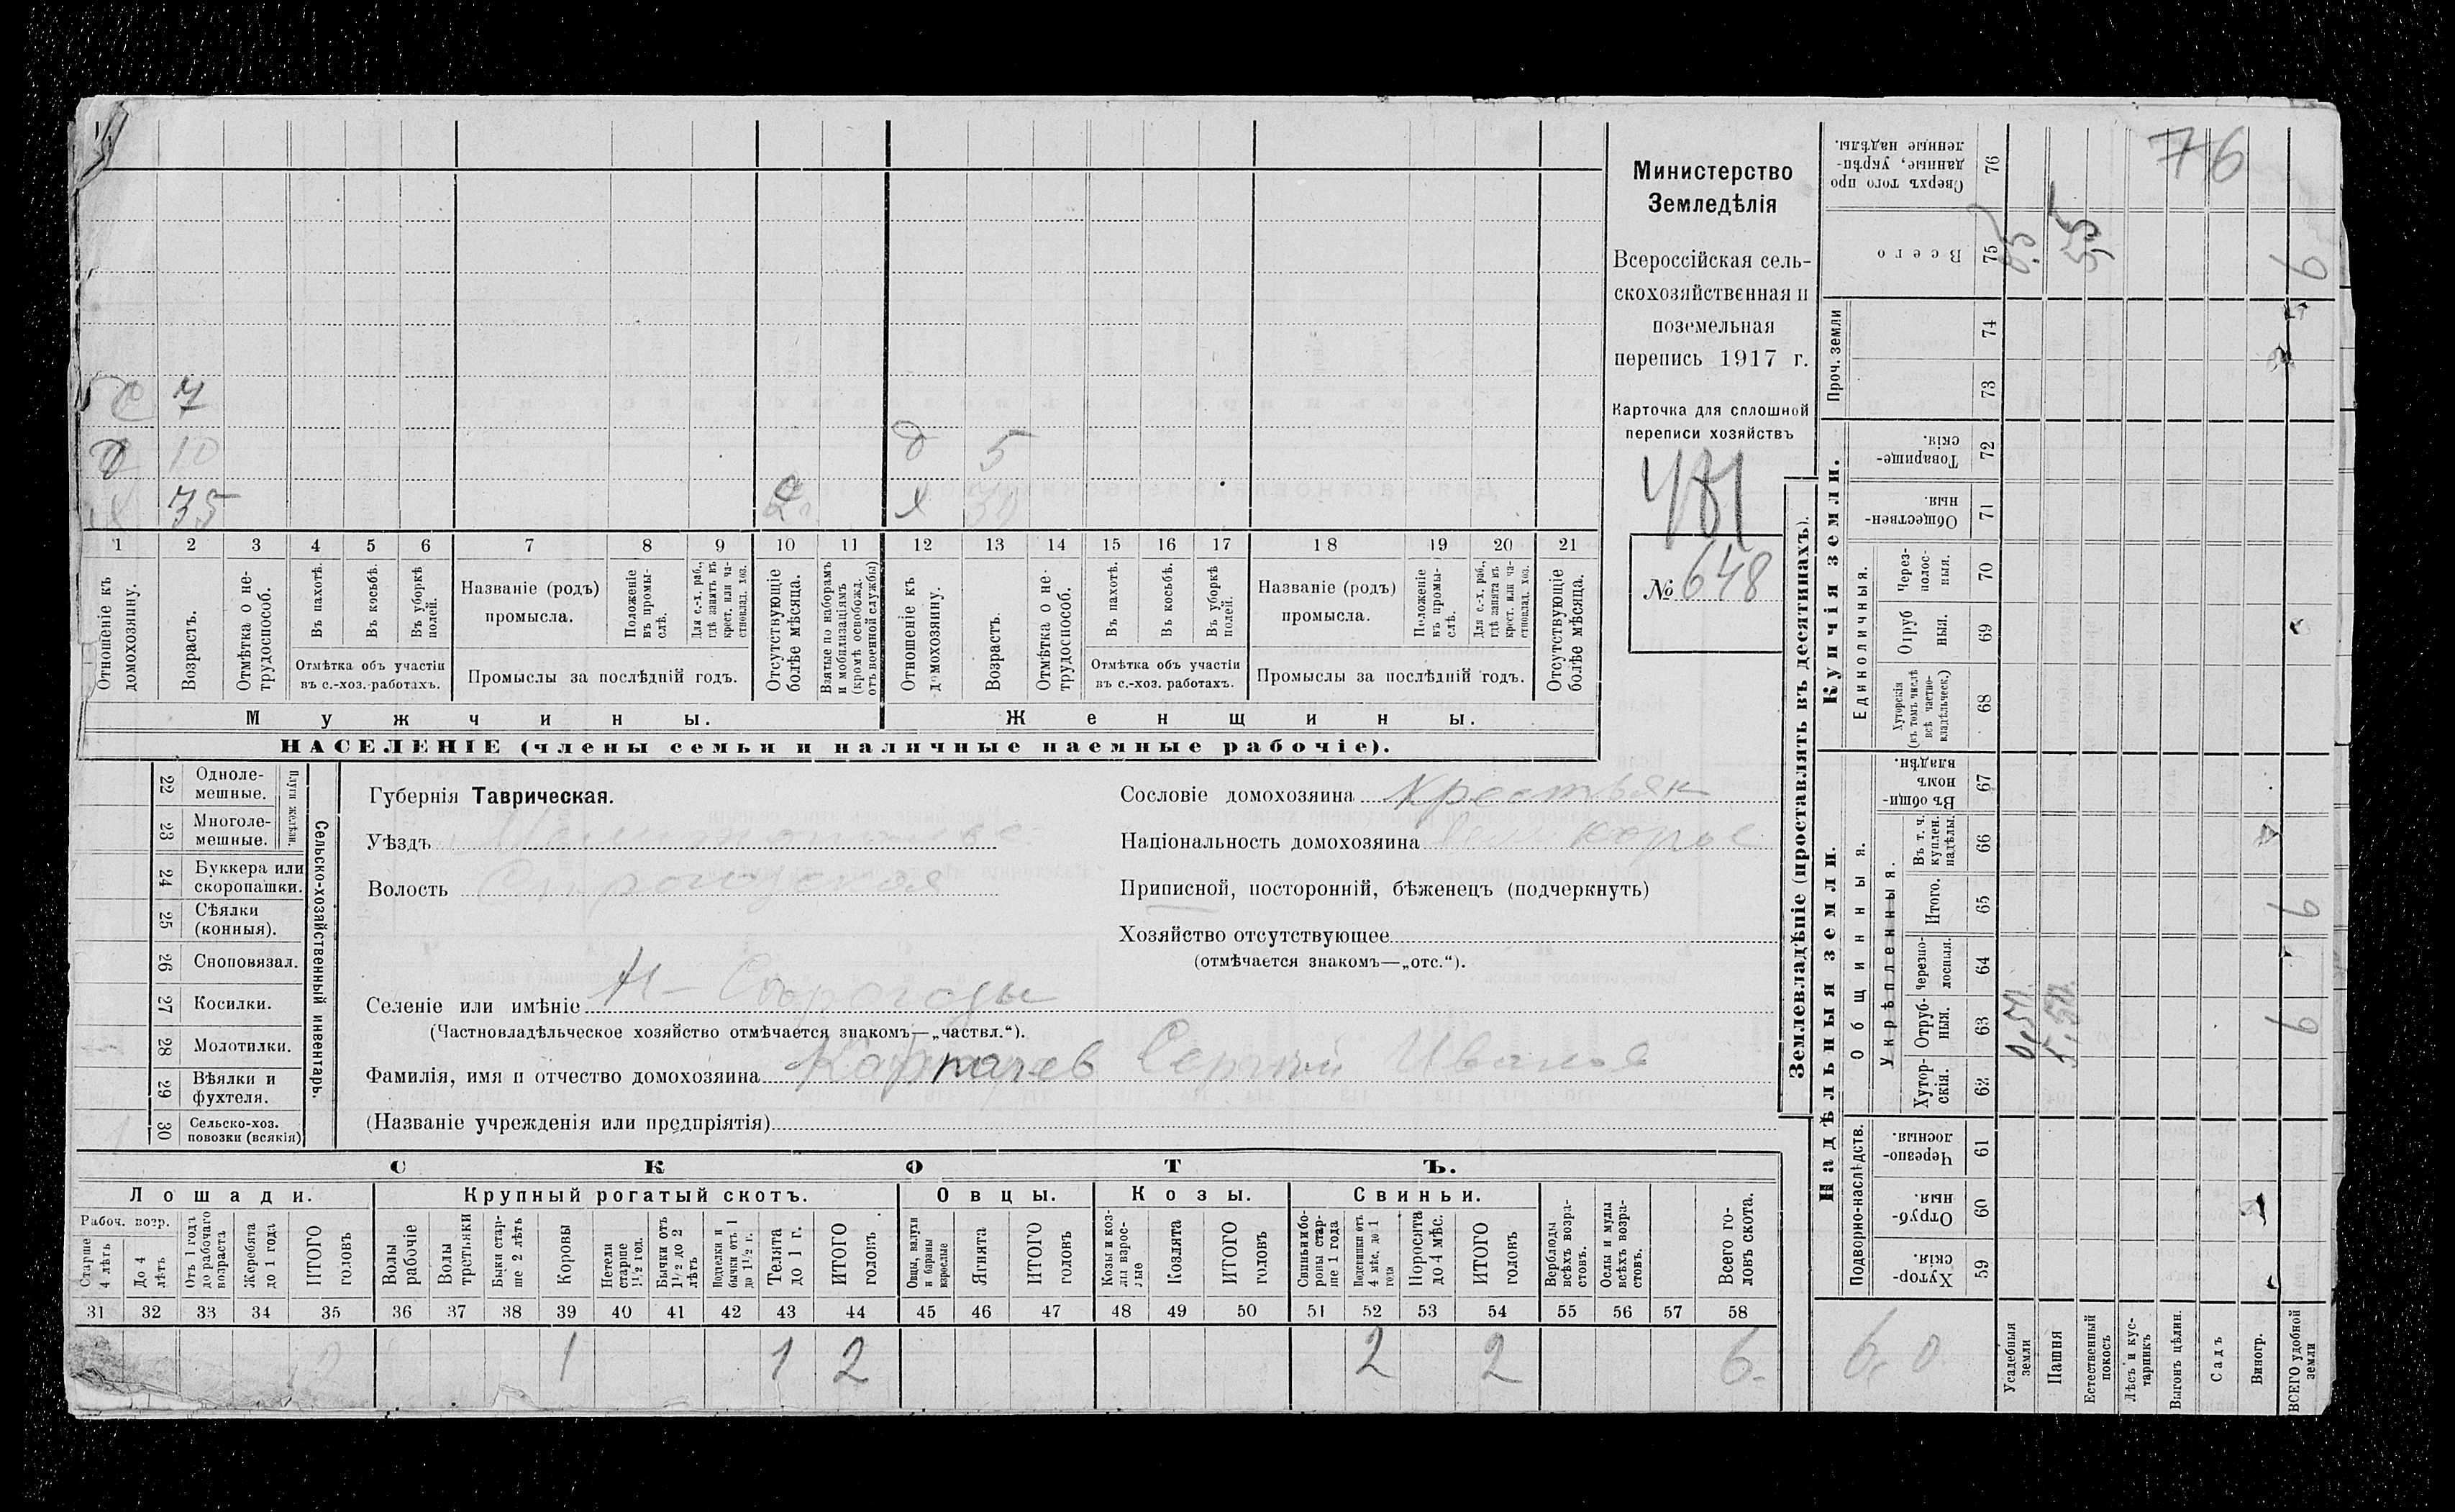 76
Министерство
Земледѣлія
Всероссійская сель-
скохозяйственная и
поземельная
перепись 1917 г.
Карточка для сплошной
переписи хозяйствъ
№ 648
7
10
35
5
30
1 2 3 4 5 6 7 8 9 10 11 12 13 14 15 16 17 18 19 20 21
Отношеніе къ домохозяину.
Возрастъ.
Отмѣтка о не-трудоспособ.
Въ пахотѣ.
Въ косьбѣ.
Въ уборкѣ полей.
Отмѣтка объ участіи
въ с.-хоз. работахъ.
Названіе (родъ)
промысла.
Положеніе въ промы-слѣ.
Для с.-х. раб., гдѣ занятъ въ крест. или ча-стновлад. хоз.
Промыслы за послѣдній годъ.
Отсутствующіе болѣе мѣсяца.
Взятые по наборамъ и мобилизаціямъ (кромѣ освобожд. отъ военной службы)
Отношеніе къ домохозяину.
Возрастъ.
Отмѣтка о не-трудоспособ.
Въ пахотѣ.
Въ косьбѣ.
Въ уборкѣ полей.
Отмѣтка объ участіи
въ с.-хоз. работахъ.
Названіе (родъ)
промысла.
Положеніе въ промы-слѣ.
Для с.-х. раб., гдѣ занята въ крест. или ча-стновлад. хоз.
Промыслы за послѣдній годъ.
Отсутствующіе болѣе мѣсяца.
Мужчины.
Женщины.
НАСЕЛЕНІЕ (члены семьи и наличные наемные рабочіе).
Сельско-хозяйственный инвентарь.
Плуги желѣзн.
22 Одноле-мешные.
23 Многоле-мешные.
24 Буккера или скоропашки.
25 Сѣялки (конныя).
26 Сноповязал.
27 Косилки.
28 Молотилки.
29 Вѣялки и фухтеля.
30 Сельско-хоз. повозки (всякія)
Губернія Таврическая.
Уѣздъ Мелитопольск
Волость
Сословіе домохозяина Крестьян
Національность домохозяина Великорос
Приписной, посторонній, бѣженецъ (подчеркнуть)
Хозяйство отсутствующее
(отмѣчается знакомъ—„отс.“).
Селеніе или имѣніе Н-Сѣрогозы
(Частновладѣльческое хозяйство отмѣчается знакомъ—„частвл.“).
Фамилія, имя и отчество домохозяина Карпачев Сергий Иванов
(Названіе учрежденія или предпріятія)
СКОТЪ.
Лошади.
Крупный рогатый скотъ.
Овцы.
Козы.
Свиньи.
Рабоч. возр.
Старше 4 лѣтъ
До 4 лѣтъ
Отъ 1 года до рабочаго возраста
Жеребята до 1 года
ИТОГО головъ
Волы рабочіе
Волы третьяки
Быки стар-ше 2 лѣтъ
Коровы
Нетели старше 1½ год.
Бычки отъ 1½ до 2 лѣтъ
Подтелки и бычки отъ 1 до 1½ г.
Телята до 1 г.
ИТОГО головъ
Овцы, валухи и бараны взрослые
Ягнята
ИТОГО головъ
Козы и коз-лы взрос-лые
Козлята
ИТОГО головъ
Свиньи и бо-ровы стар-ше 1 года
Подсвинки отъ 4 мѣс. до 1 года
Поросята до 4 мѣс.
ИТОГО головъ
Верблюды всѣхъ возра-стовъ.
Ослы и мулы всѣхъ возра-стовъ.
Всего го-ловъ скота.
31 32 33 34 35 36 37 38 39 40 41 42 43 44 45 46 47 48 49 50 51 52 53 54 55 56 57 58
2 1 1 2 2 2 6
Землевладѣніе (проставлять въ десятинахъ).
Надѣльныя земли.
Купчія земли.
Проч. земли
Подворно-наслѣдств.
Общинныя.
Укрѣпленныя.
Единоличныя.
59 Хутор-скія.
60 Отруб-ныя.
61 Черезпо-лосныя.
62 Хутор-скія.
63 Отруб-ныя.
64 Черезпо-лосныя.
65 Итого.
66 Въ т. ч. куплен. надѣлы.
67 Въ общи-номъ владѣн.
68 Хуторскія (въ томъ числѣ всѣ частно-владѣльческ.)
69 Отруб ныя.
70 Через-полос-ныя.
71 Обществен-ныя.
72 Товарище-скія.
73
74
75 Всего
76 Сверхъ того про данные, укрѣп-ленные надѣлы.
6,0
Усадебныя земли
Пашня
Естественный покосъ
Лѣсъ и кус-тарникъ
Выгонъ цѣлин.
Садъ
Виногр.
ВСЕГО удобной земли
0,5
5,5
6
6
6